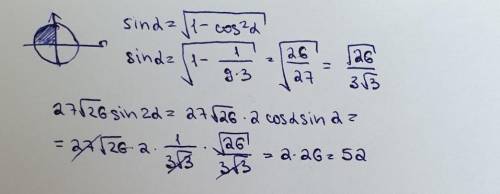 sinα = √(1 - cos²α)
sinα = √(1 - 1/(9·3)) = √(26/27) = √26/(3√3)
27√26 sin2α = 27√26 · 2 cosα sinα =
= 27√26 · 2 · 1/(3√3) · √26/(3√3) = 2·26 = 52